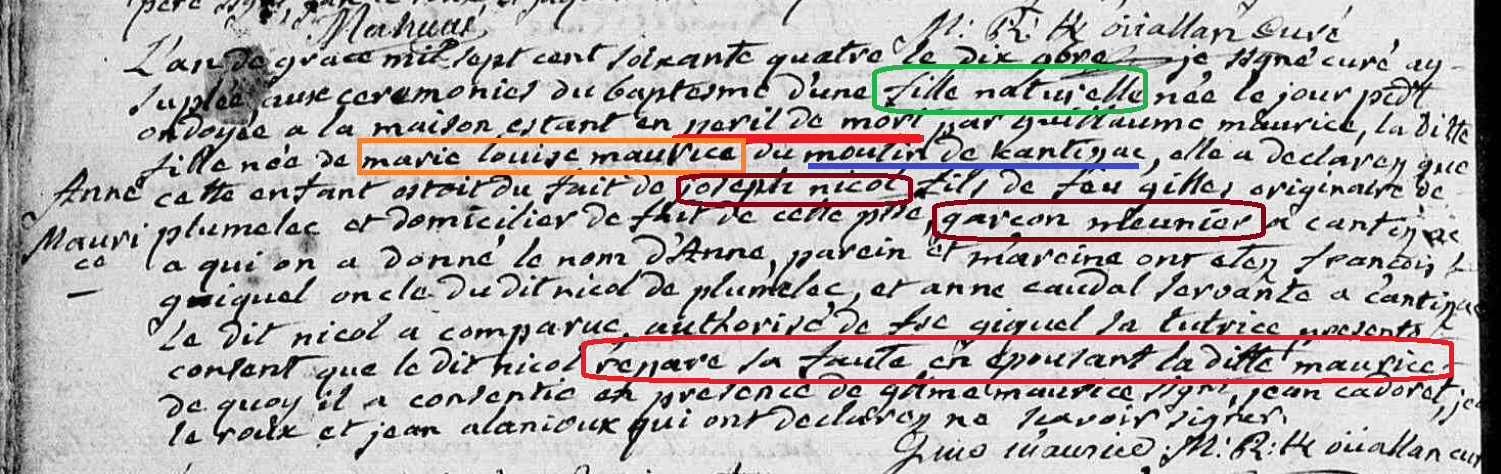 Mahuas M: R: K ouallan Curé
L'an de grace mil sept cent soixante quatre le dix 9bre je signé curé ay
suplée aux ceremonies du baptesme d'une fille naturelle née le jour pñdt
ondoyée a la maison estant en peril de mort par guillaume maurice, la ditte
fille née de marie louise maurice du moulin de kantizac, elle a declarez que
Anne cette enfant estoit du fait de joseph nicol fils de feu gilles originaire de
Mauri plumelec et domicilier de fait de cette psse, garcon meunier a
ce a qui on a donné le nom d'Anne, parein et mareine ont etez francois
guiguel oncle du dit nicol de plumelec, et anne caudal servante a
le dit nicol a comparue, authorisé de fse giquel sa tutrice presents
consent que le dit nicol repare sa faute en epousant la ditte maurice
de quoy il a consentie en presence de glme maurice signt, jean cadoret,
le roux et jean alanioux qui ont declarez ne scavoir signer.
maurice M: R: K ouallan cur